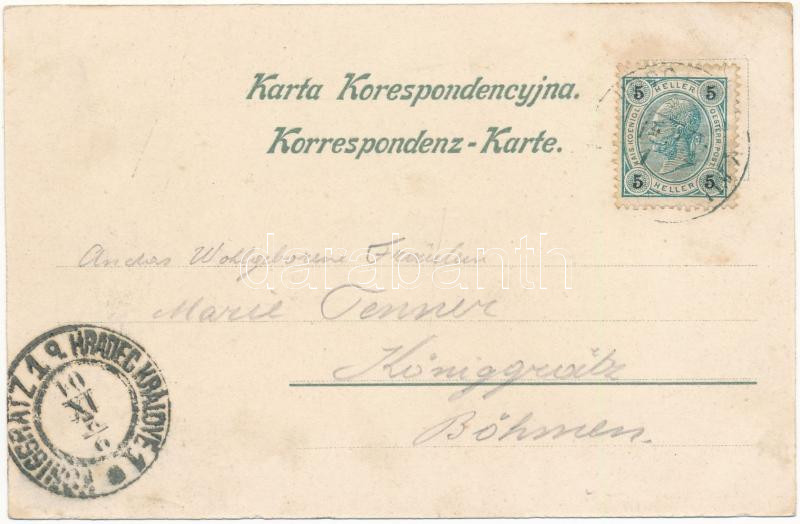 Karta Korespondencyjna.
Korrespondenz-Karte.
5 HELLER 5
KAIS. KOENIGL.
OESTERR. POST.
5 HELLER 5
An das Wohlgeborene Fräulein
darabanth
Marie Tenner
Königgrätz
Böhmen.
KÖNIGGRÄTZ 1 HRADEC KRÁLOVÉ 1
XI